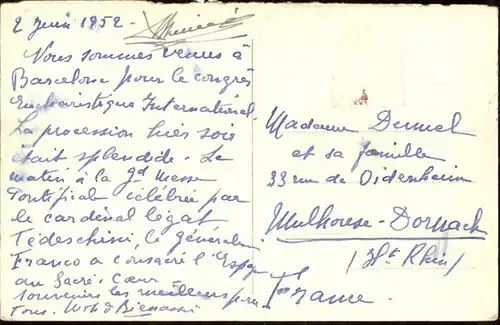 2 Juin 1952 -
Nous sommes venues à
Barcelone pour le congrès
Eucharistique International.
La procession hier soir
était splendide. Le
matin à la gd Messe
Pontificale célébrée par
le cardinal légat
Tedeschini, le général
Franco a consacré l'Espagne
au Sacré-Coeur
souvenirs les meilleurs pour
Tous.
Madame Demel
et sa famille
33 rue de Didenheim
Mulhouse-Dornach
(Ht Rhin)
France.